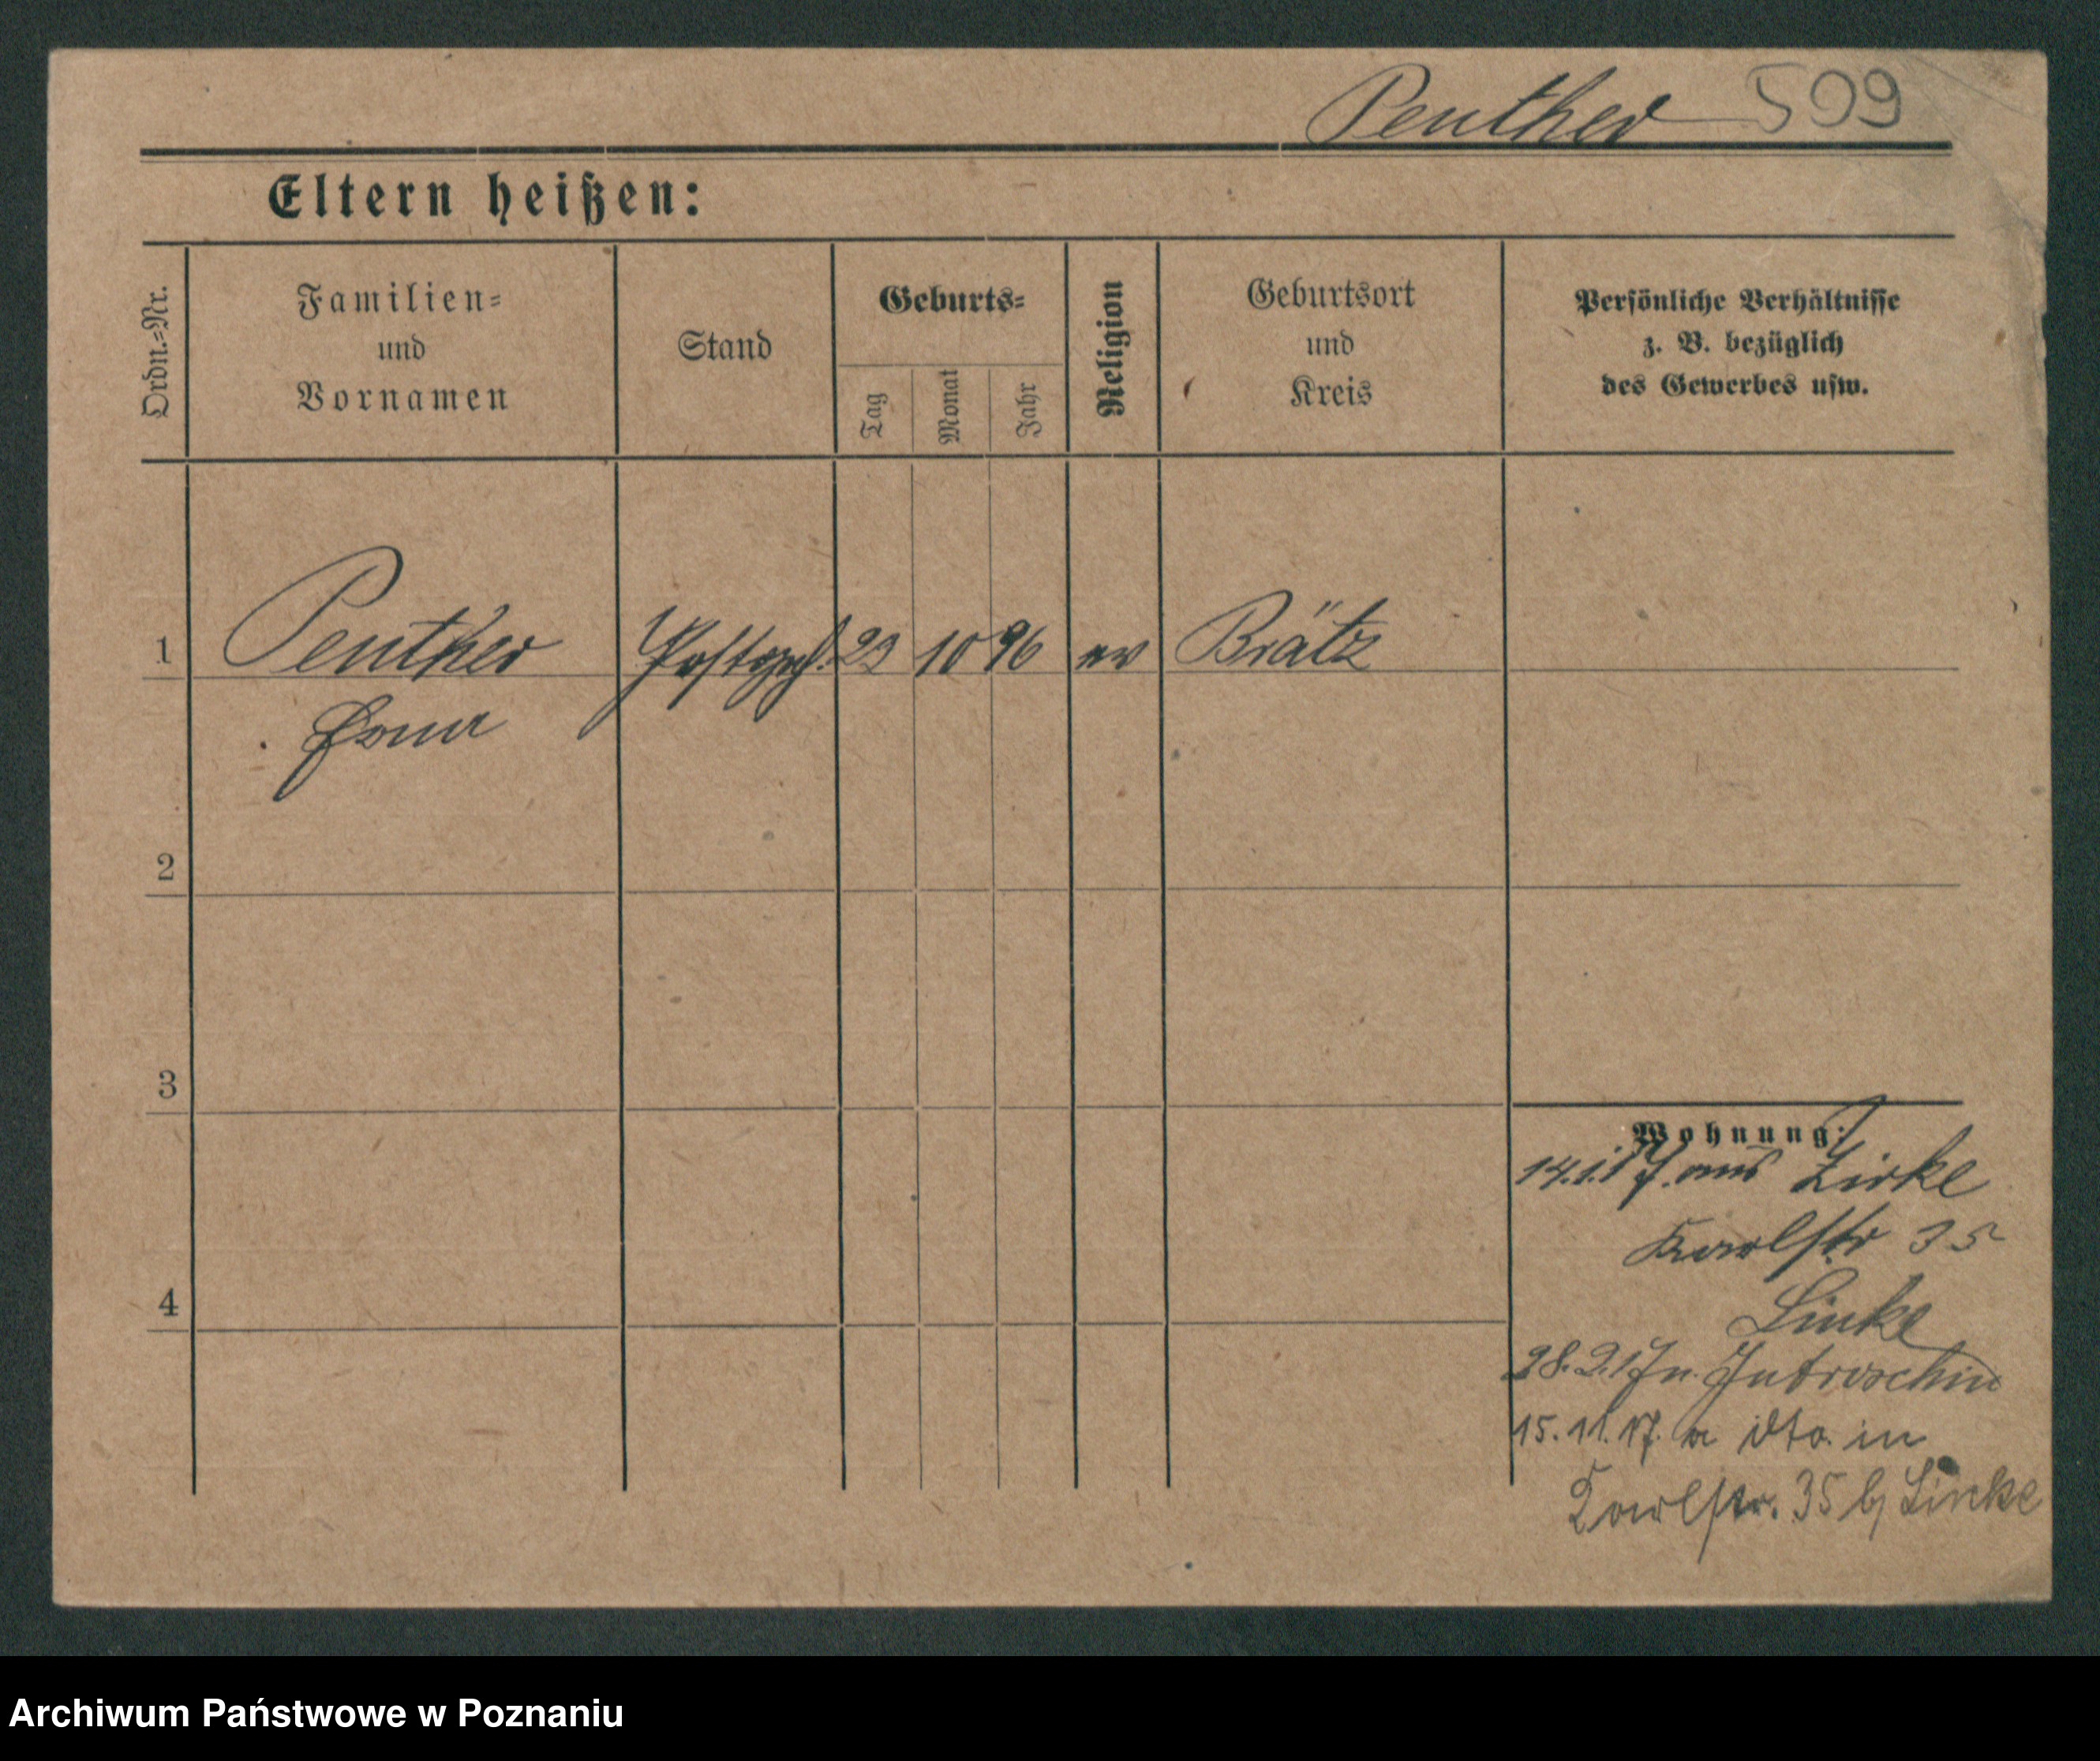 Penther 509
Eltern heißen:
Ordn.=Nr.
Familien=
und
Vornamen
Stand
Geburts=
Tag
Monat
Jahr
Religion
Geburtsort
und
Kreis
Persönliche Verhältnisse
z. B. bezüglich
des Gewerbes usw.
1 Penther Postgeh. 23 10 96 ev Brätz
Erna
2
3
4
Wohnung:
14.1.17. aus Zirke
Karlstr 35
Linke
28.2.17 n. Jutroschin
15.11.17. dto. in
Karlstr. 35 b/ Linke
Archiwum Państwowe w Poznaniu